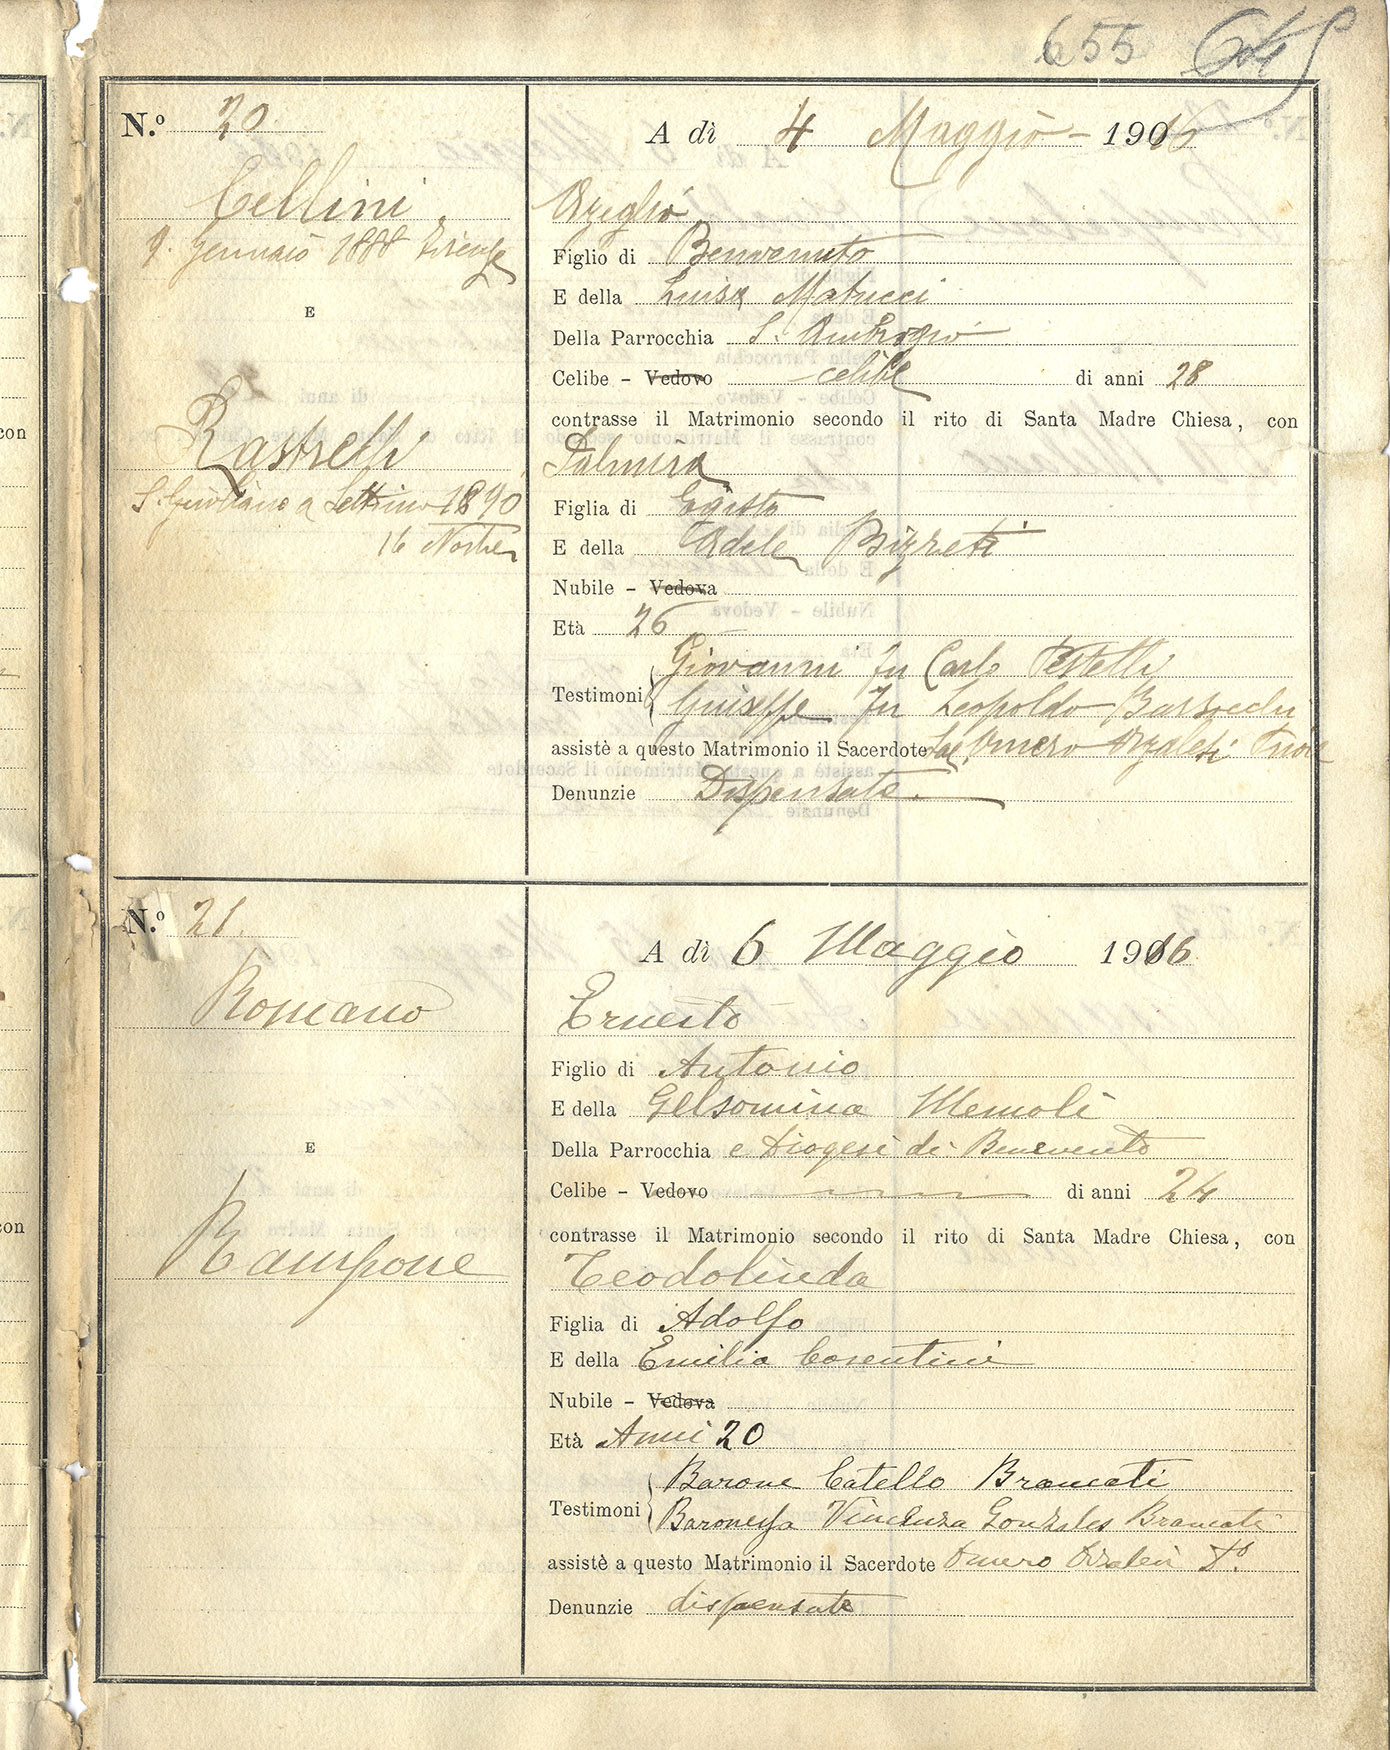 655
N.º 20.
Cellini
9. Gennaio 1888 Firenze
E
Rastrelli
S. Giuliano a Settimo 1890
16 Nostre
A dì 4 Maggio - 1916
Figlio di Benvenuto
E della Luisa Matucci
Della Parrocchia S. Ambrogio
Celibe - Vedovo celibe di anni 28
contrasse il Matrimonio secondo il rito di Santa Madre Chiesa, con
Palmira
Figlia di Egisto
E della Adele Bizzeti
Nubile - Vedova
Età 26
Giovanni fu Carlo Pestelli
Testimoni
Giuseppe fu Leopoldo
assistè a questo Matrimonio il Sacerdote Sac. Omero Orzalesi
Denunzie Dispensate.
N.º 21.
Romano
E
Rampone
A dì 6 Maggio 1916
Ernesto
Figlio di Antonio
E della Gelsomina Memoli
Della Parrocchia e Diogesi di Benevento
Celibe - Vedovo di anni 24
contrasse il Matrimonio secondo il rito di Santa Madre Chiesa, con
Teodolinda
Figlia di Adolfo
E della Emilia Cosentini
Nubile - Vedova
Età Anni 20
Barone Catello Brancati
Testimoni
Baronessa Vincenza Gonzales Brancati
assistè a questo Matrimonio il Sacerdote Omero Orzalesi
Denunzie dispensate
con
con